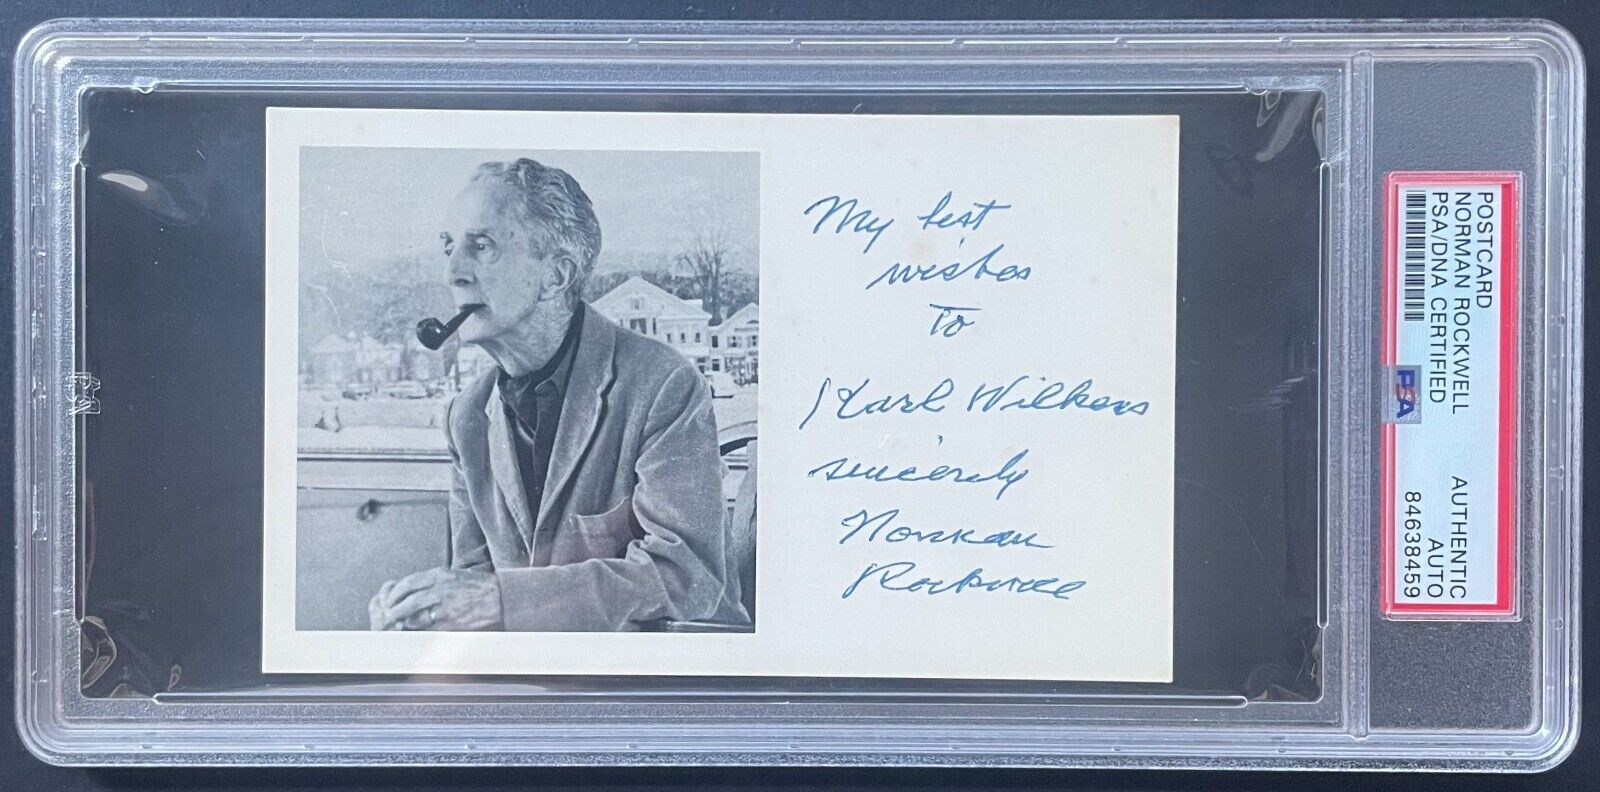 My best
wishes
To
Karl Wilkens
sincerely
Norman
Rockwell
POSTCARD
NORMAN ROCKWELL AUTHENTIC
PSA/DNA CERTIFIED AUTO
84638459
PSA
PSA